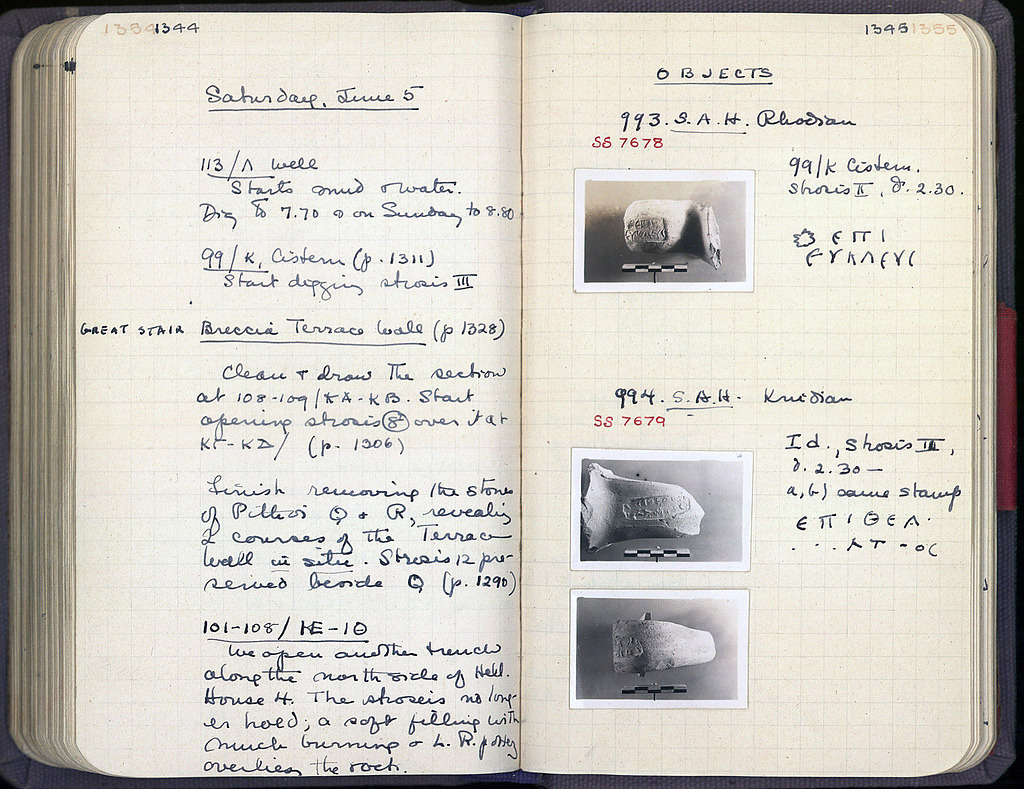 1354 1344
Saturday, June 5
113/Λ well
Starts mud & water.
Dig to 7.70 & on Sunday to 8.80
99/K, Cistern (p. 1311)
Start digging strosis III
GREAT STAIR Breccia Terrace Wall (p 1328)
Clean & draw the section
at 108-109/KA-KB. Start
opening strosis over it at
KΓ-KΔ/ (p. 1306)
Finish removing the stones
of Pithoi Q & R, revealing
2 courses of the Terrace
wall in situ. Strosis 12 pre-
served beside Q (p. 1290)
101-108/KE-ΙΘ
We open another trench
along the north side of Hell.
House H. The stroseis no long-
er hold; a soft filling with
much burning & L. R. pottery
overlies the rock.
1345 1355
OBJECTS
993. S.A.H. Rhodian
SS 7678
99/K Cistern.
Strosis II, d. 2.30.
ϵ Π Ι
ϵ Υ Κ Λ ϵ Υ C
994. S.A.H. Knidian
SS 7679
Id., Strosis III,
d. 2.30 —
a, b) same stamp
ϵ Π Ι Θ ϵ Λ ·
· · · Λ Τ - ο C